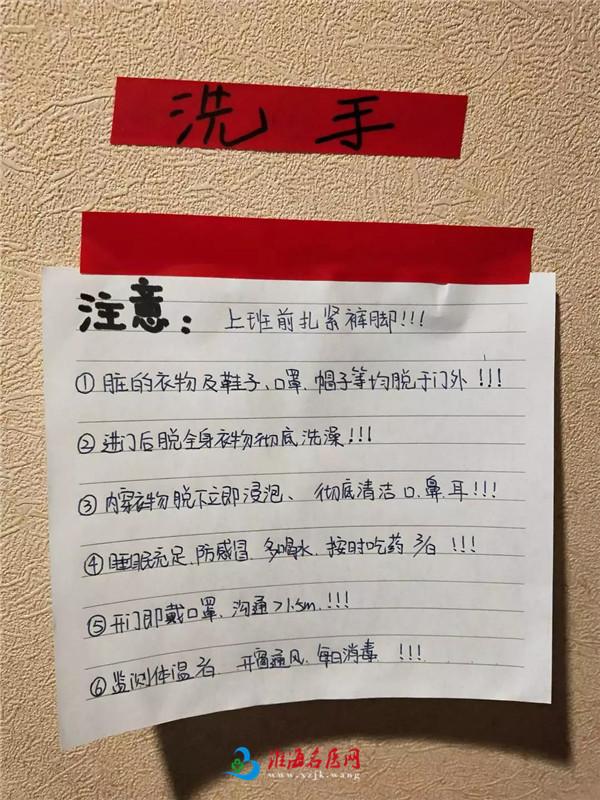 洗 手
注意: 上班前扎紧裤脚!!!
①脏的衣物及鞋子、口罩、帽子等均脱于门外!!!
②进门后脱全身衣物彻底洗澡!!!
③内穿衣物脱下立即浸泡、彻底清洁口.鼻.耳!!!
④睡眠充足.防感冒.多喝水.按时吃药 3/日 !!!
⑤开门即戴口罩、沟通>1.5m.!!!
⑥监测体温 开窗通风.每日消毒 !!!
淮海名医网
www.xzjk.wang